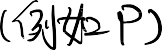 (例如P)